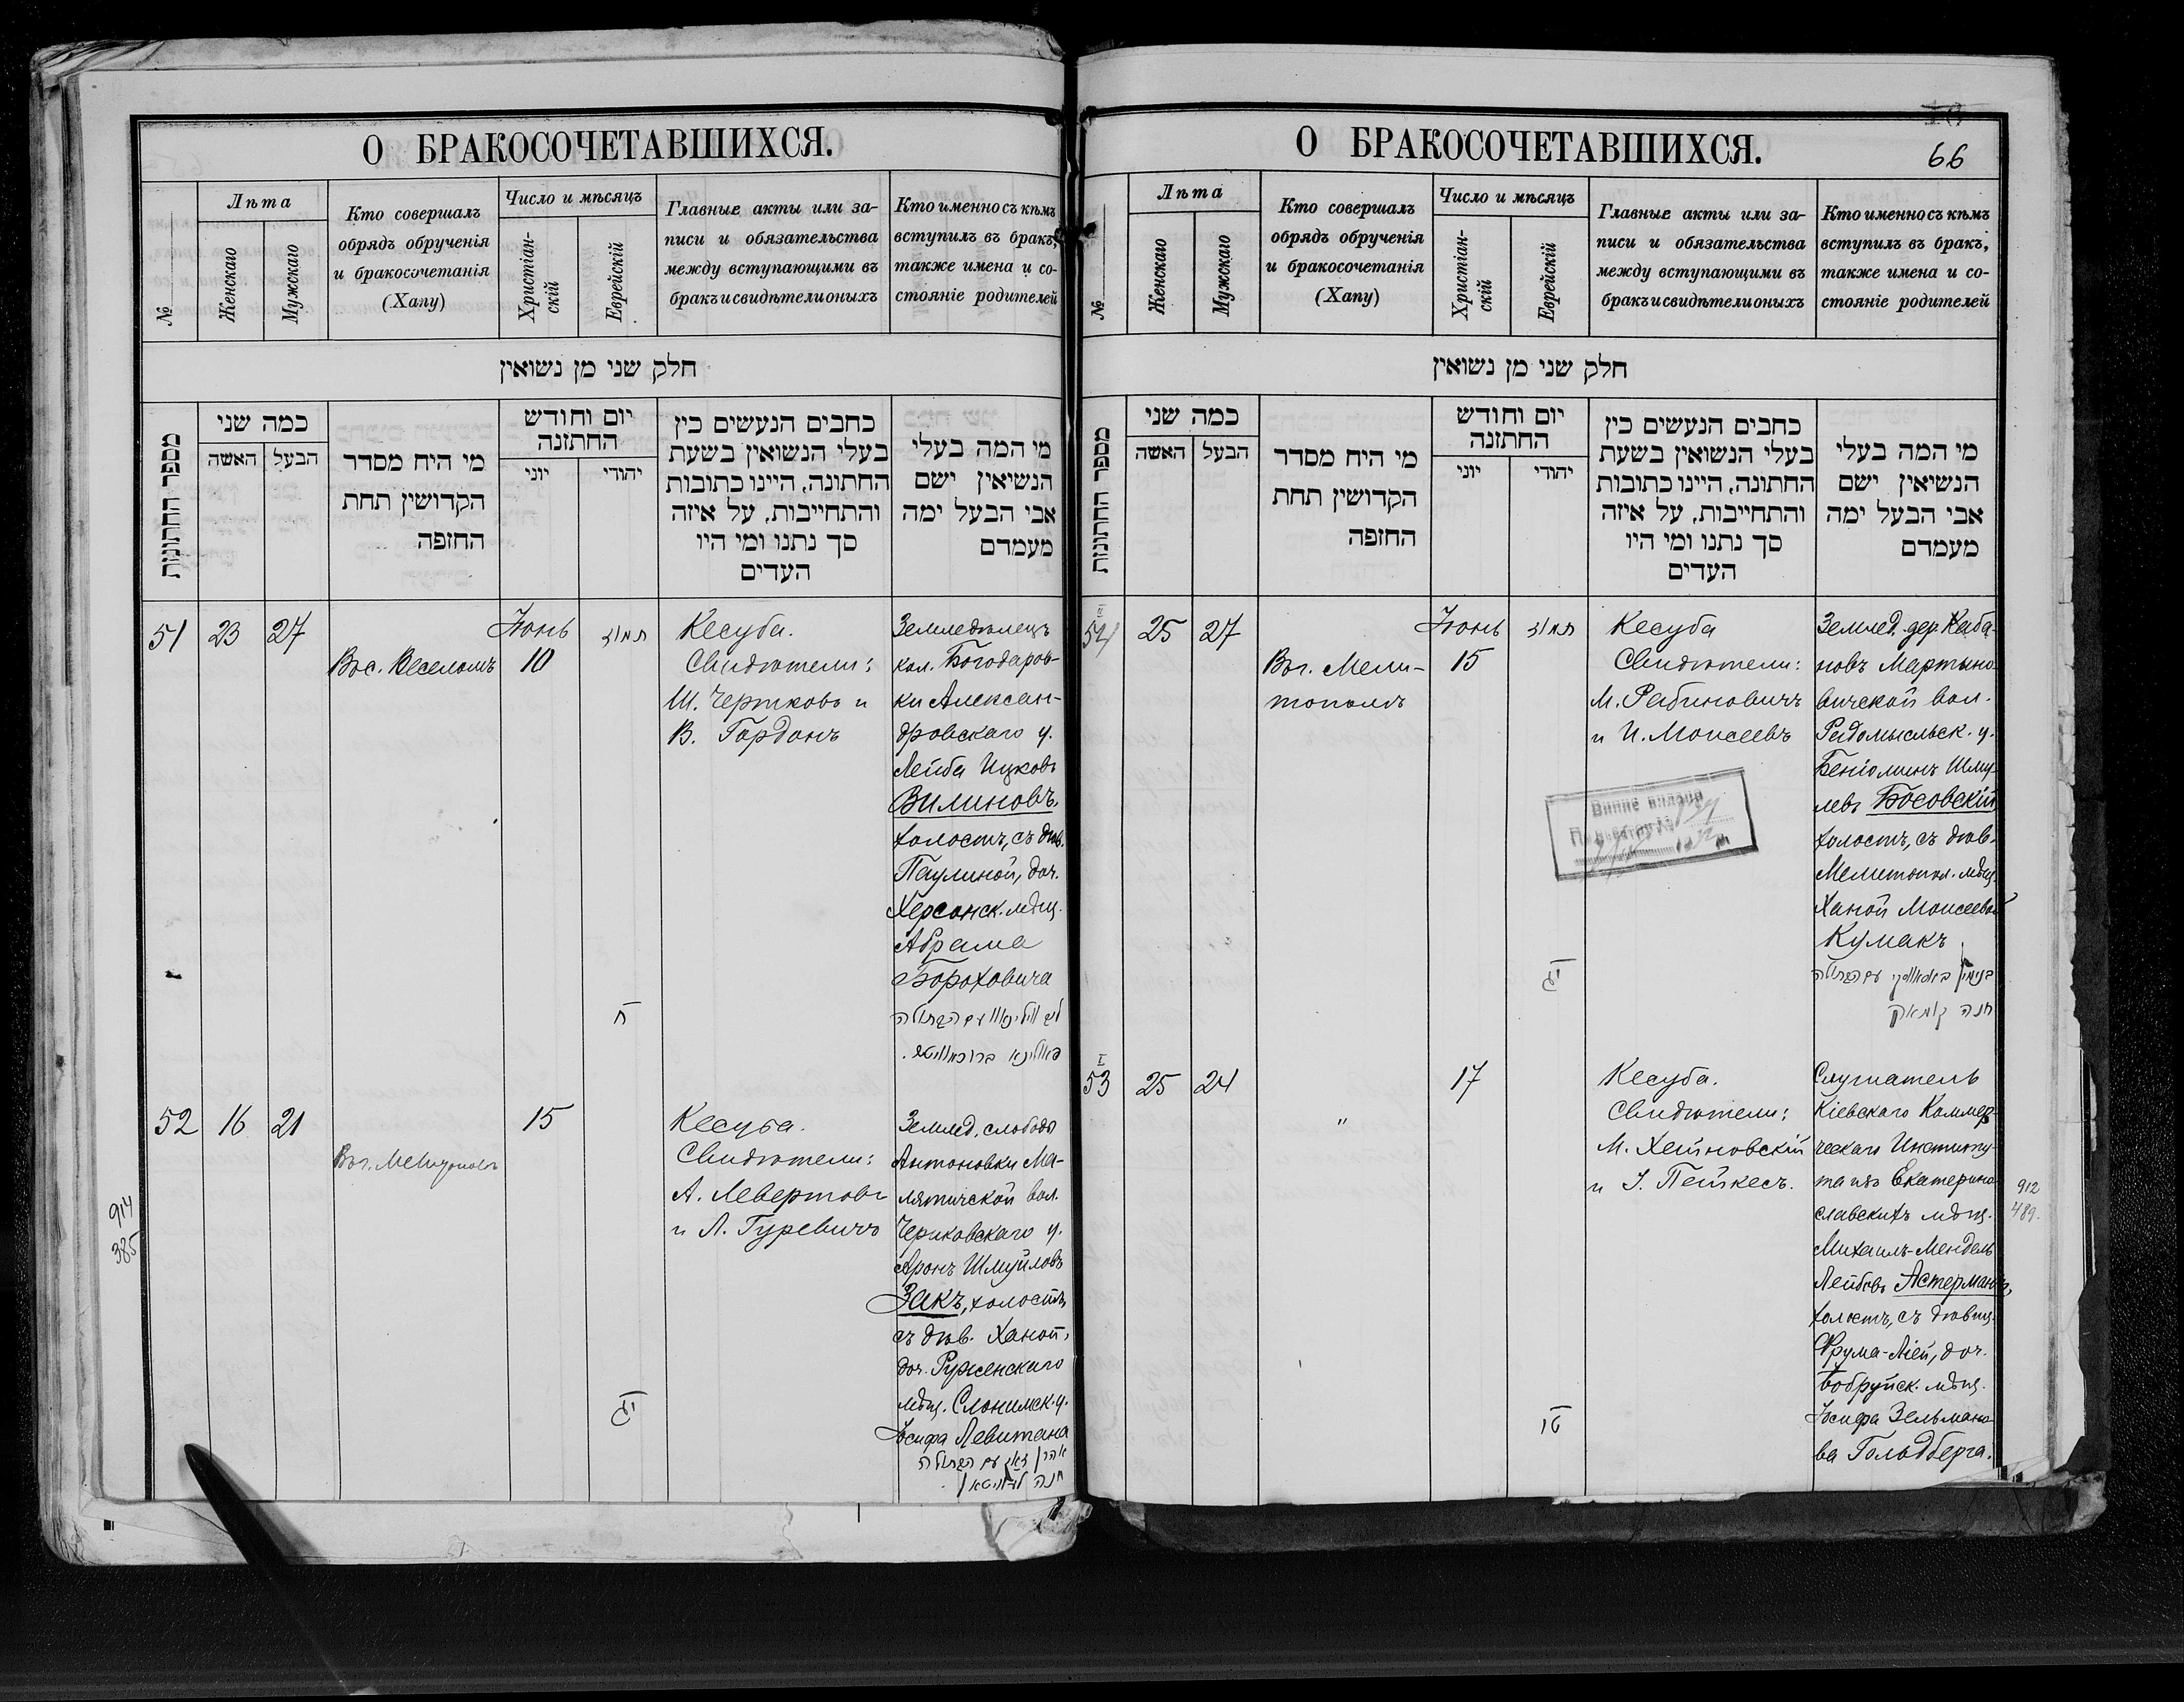 О БРАКОСОЧЕТАВШИХСЯ.
№
Лѣта
Женскаго
Мужскаго
Кто совершалъ
обрядъ обрученія
и бракосочетанія
(Хапу)
Число и мѣсяцъ
Христіан-
скій
Еврейскій
Главные акты или за-
писи и обязательства
между вступающими въ
бракъ и свидѣтели оныхъ
Кто именно съ кѣмъ
вступилъ въ бракъ,
также имена и со-
стояніе родителей
חלק שני מן נשואין
מספר החתונות
כמה שני
האשה
הבעל
מי היח מסדר
הקדושין תחת
החופה
יום וחודש
החתונה
יוני
יהודי
כתבים הנעשים בין
בעלי הנשואין בשעת
החתונה, היינו כתובות
והתחייבות, על איזה
סך נתנו ומי היו
העדים
מי המה בעלי
הנשיאין ישם
אבי הבעל ימה
מעמדם
51
23
27
Въ с. Веселомъ
Іюнь
10
תמוז
ח
Кесуба.
Свидѣтели:
Ш. Чертковъ и
В. Гордонъ
Земледѣлецъ
кол. Богодаров-
ки Алексан-
дровскаго у.
Лейба Ицковъ
Вилиновъ,
холостъ, съ дѣв.
Паулиной, доч.
Херсонск. мѣщ.
Абрама
Бороховича
לייב ווילינאוו עם הבתולה
פאולינא ברוכאוויטש.
52
16
21
Въ г. Мелитополѣ
15
יג
Кесуба.
Свидѣтели:
А. Левертовъ
и Л. Гуревичъ
Землед. слободы
Антоновки Ма-
лятичской вол.
Чериковскаго у.
Аронъ Шмуйловъ
Закъ, холостъ,
съ дѣв. Ханой,
доч. Руженскаго
мѣщ. Слонимск. у.
Іосифа Левитана
אהרן זאק עם הבתולה
חנה לעוויטאן.
914
385
О БРАКОСОЧЕТАВШИХСЯ.
66
№
Лѣта
Женскаго
Мужскаго
Кто совершалъ
обрядъ обрученія
и бракосочетанія
(Хапу)
Число и мѣсяцъ
Христіан-
скій
Еврейскій
Главные акты или за-
писи и обязательства
между вступающими въ
бракъ и свидѣтели оныхъ
Кто именно съ кѣмъ
вступилъ въ бракъ,
также имена и со-
стояніе родителей
חלק שני מן נשואין
מספר החתונות
כמה שני
האשה
הבעל
מי היח מסדר
הקדושין תחת
החופה
יום וחודש
החתונה
יוני
יהודי
כתבים הנעשים בין
בעלי הנשואין בשעת
החתונה, היינו כתובות
והתחייבות, על איזה
סך נתנו ומי היו
העדים
מי המה בעלי
הנשיאין ישם
אבי הבעל ימה
מעמדם
54
25
27
Въ г. Мели-
тополѣ
Іюнь
15
תמוז
יג
Кесуба
Свидѣтели:
М. Рабиновичъ
и И. Моисеевъ
Землед. дер. Каба-
новъ Мартыно-
вичской вол.
Радомысльск. у.
Беніоминъ Шму-
левъ Босовскій
холостъ, съ дѣв.
Мелитопол. мѣщ.
Ханой Моисеевой
Кумакъ
בנימין באסאווסקי עם הבתולה
חנה קומאק
53
25
24
"
17
טו
Кесуба.
Свидѣтели:
М. Хейновскій
и І. Пейкесъ.
Слушатель
Кіевскаго Коммер-
ческаго Институ-
та изъ Екатерино-
славскихъ мѣщ.
Михаилъ-Мендель
Лейбовъ Астерманъ,
холостъ, съ дѣвиц.
Фрума-Ліей, доч.
Бобруйск. мѣщ.
Іосифа Зельмано-
ва Гольдберга.
912
489.